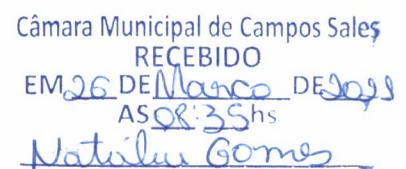 Câmara Municipal de Campos Sales
RECEBIDO
EM 26 DE Março DE
AS 08:35hs
Natália Gomes